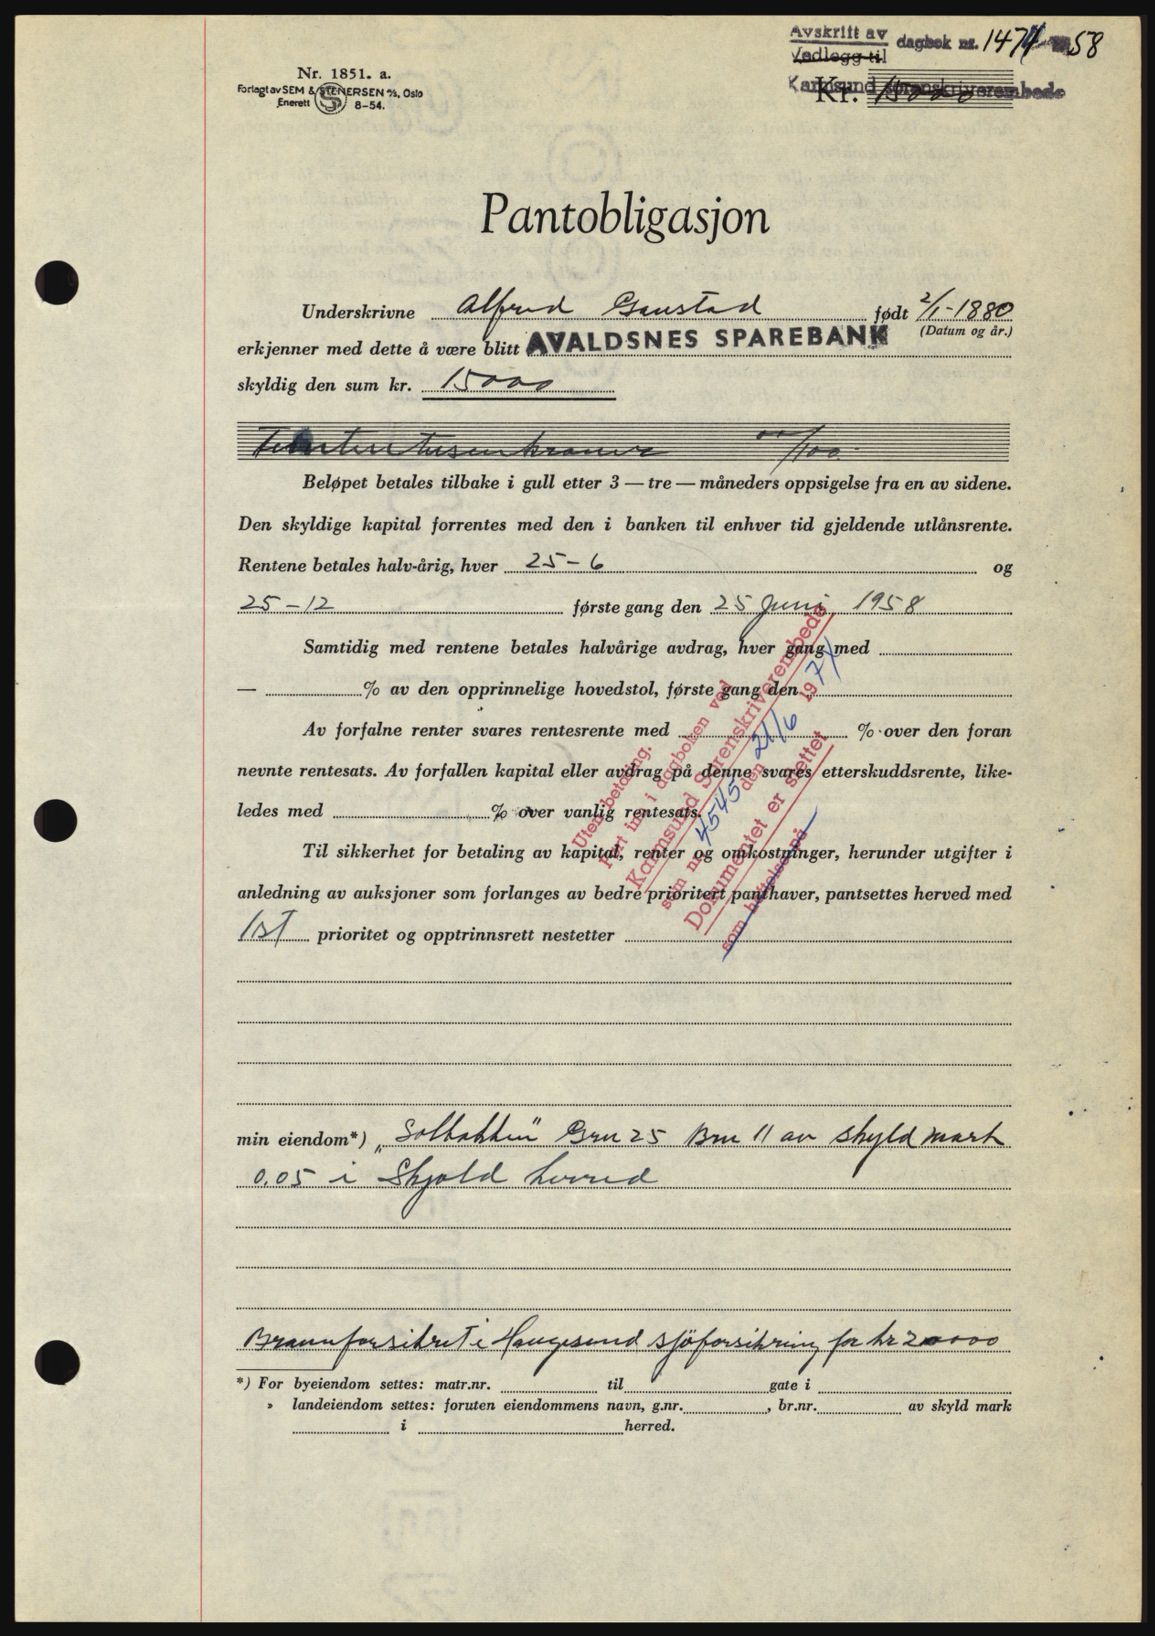 Avskrift av
Vedlegg til
dagbok nr. 1474 58
Karmsund Sorenskriverembede
Nr. 1851. a.
Forlagt av SEM & STENERSEN A/S, Oslo
Enerett S 8-54.
Kr. 15000
Pantobligasjon
Underskrivne Alfred Gaustad født 2/1-1880
(Datum og år.)
erkjenner med dette å være blitt AVALDSNES SPAREBANK
skyldig den sum kr. 15000
Femtentusenkroner 00/100
Beløpet betales tilbake i gull etter 3 — tre — måneders oppsigelse fra en av sidene.
Den skyldige kapital forrentes med den i banken til enhver tid gjeldende utlånsrente.
Rentene betales halv-årig, hver 25-6 og
25-12 første gang den 25 Juni 1958
Samtidig med rentene betales halvårige avdrag, hver gang med
— % av den opprinnelige hovedstol, første gang den
Av forfalne renter svares rentesrente med % over den foran
nevnte rentesats. Av forfallen kapital eller avdrag på denne svares etterskuddsrente, like-
ledes med % over vanlig rentesats.
Til sikkerhet for betaling av kapital, renter og omkostninger, herunder utgifter i
anledning av auksjoner som forlanges av bedre prioritert panthaver, pantsettes herved med
1ST prioritet og opptrinnsrett nestetter
Uten betaling.
Ført inn i dagboken ved
Karmsund Sorenskriverembede
som nr. 4545 den 21/6 1971
Dokumentet er slettet
som heftelse på
min eiendom*) „Solbakken" Gnr 25 Bnr 11 av skyld mark
0.05 i Skjold herred
Brannforsikret i Haugesund sjöforsikring for kr 20000
*) For byeiendom settes: matr.nr. til gate i
» landeiendom settes: foruten eiendommens navn, g.nr. , br.nr. av skyld mark
i herred.